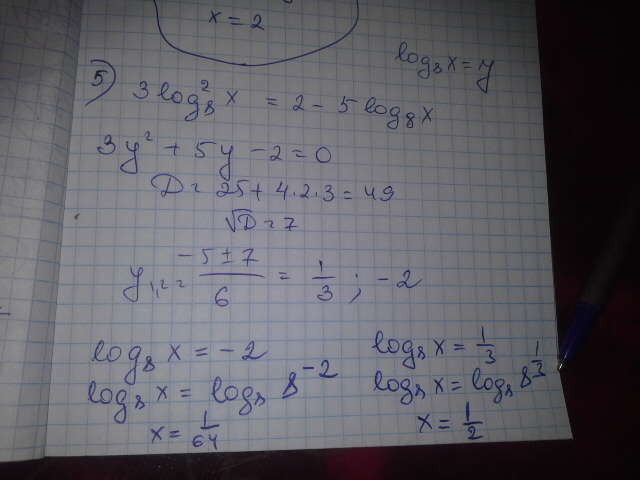 x = 2
log₈x = y
5) 3log₈²x = 2 - 5log₈x
3y² + 5y - 2 = 0
D = 25 + 4·2·3 = 49
√D = 7
y₁,₂ = (-5 ± 7)/6 = 1/3 ; -2
log₈x = -2
log₈x = log₈8⁻²
x = 1/64
log₈x = 1/3
log₈x = log₈8^(1/3)
x = 1/2